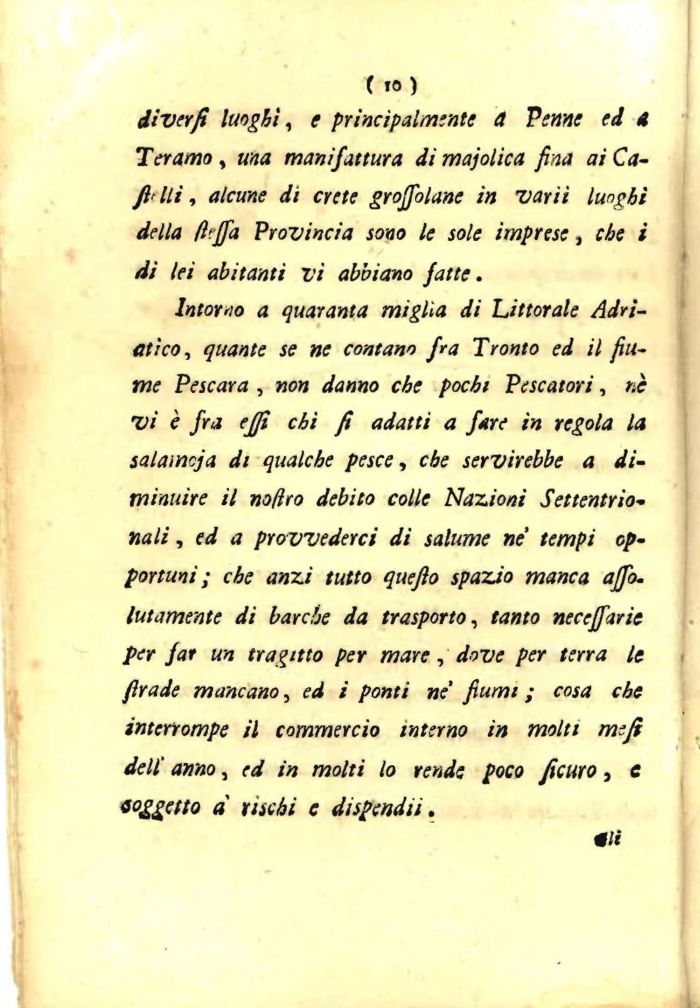 ( 10 )
diversi luoghi, e principalmente a Penne ed a
Teramo, una manifattura di majolica fina ai Ca-
stelli, alcune di crete grossolane in varii luoghi
della stessa Provincia sono le sole imprese, che i
di lei abitanti vi abbiano fatte.
Intorno a quaranta miglia di Littorale Adri-
atico, quante se ne contano fra Tronto ed il fiu-
me Pescara, non danno che pochi Pescatori, nè
vi è fra essi chi si adatti a fare in regola la
salamoja di qualche pesce, che servirebbe a di-
minuire il nostro debito colle Nazioni Settentrio-
nali, ed a provvederci di salume ne' tempi op-
portuni; che anzi tutto questo spazio manca asso-
lutamente di barche da trasporto, tanto necessarie
per far un tragitto per mare, dove per terra le
strade mancano, ed i ponti ne' fiumi; cosa che
interrompe il commercio interno in molti mesi
dell' anno, ed in molti lo rende poco sicuro, e
soggetto a' rischi e dispendii.